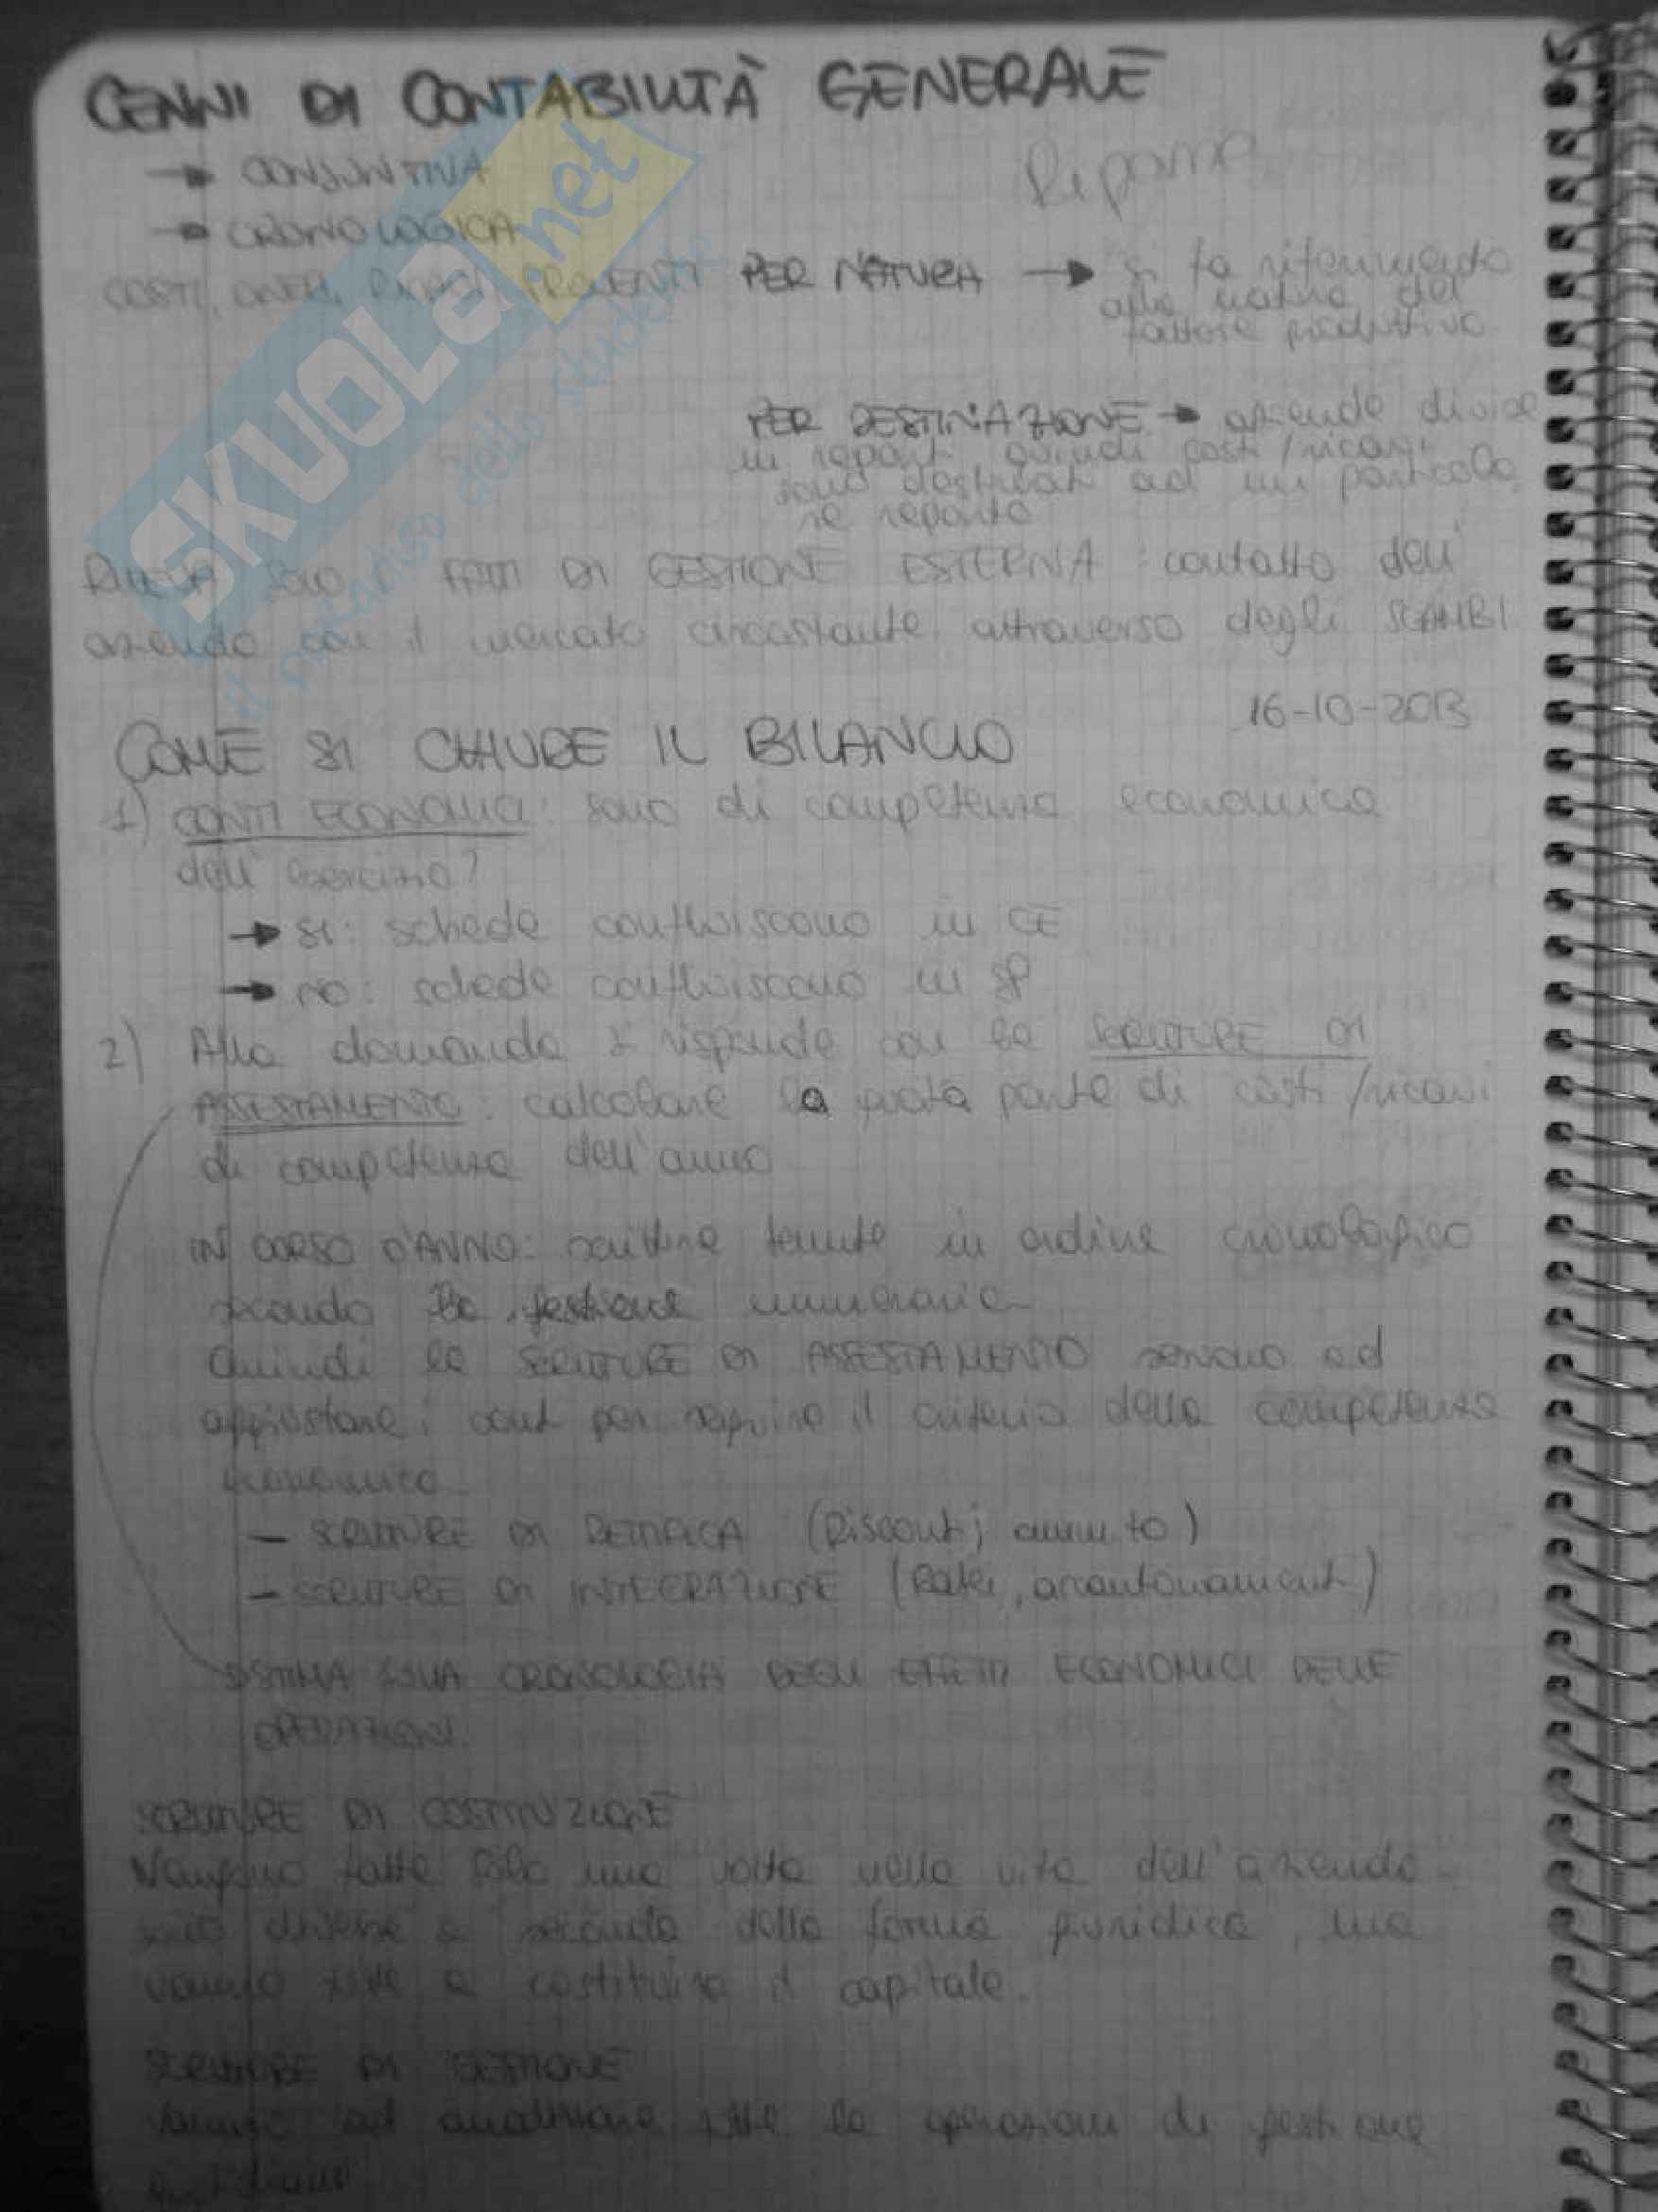 CENNI DI CONTABILITÀ GENERALE
→ CONSUNTIVA
Ripame
→ CRONOLOGICA
COSTI, ONERI, RICAVI, PROVENTI PER NATURA → si fa riferimento
alla natura del
fattore produttivo
PER DESTINAZIONE → aziende divise
in reparti quindi costi/ricavi
sono destinati ad un particola
re reparto
RILEVA SOLO I FATTI DI GESTIONE ESTERNA: contatto dell'
azienda con il mercato circostante attraverso degli SCAMBI
16-10-2013
COME SI CHIUDE IL BILANCIO
1) CONTI ECONOMICI: sono di competenza economica
dell'esercizio?
→ SI: schede confluiscono in CE
→ NO: schede confluiscono in SP
2) Alla domanda 1 risponde con le SCRITTURE DI
ASSESTAMENTO: calcolare la quota parte di costi/ricavi
di competenza dell'anno
IN CORSO D'ANNO: scritture tenute in ordine cronologico
secondo la gestione numeraria
Quindi le SCRITTURE DI ASSESTAMENTO servono ad
aggiustare i conti per seguire il criterio della competenza
economica
- SCRITTURE DI RETTIFICA (Risconti; amm.to)
- SCRITTURE DI INTEGRAZIONE (Ratei, accantonamenti)
SISTEMA SULLA CRONOLOGIA DEGLI EFFETTI ECONOMICI DELLE
OPERAZIONI.
SCRITTURE DI COSTITUZIONE
Vengono fatte solo una volta nella vita dell'azienda.
sono diverse a seconda della forma giuridica, ma
vanno tutte a costituire il capitale.
SCRITTURE DI GESTIONE
Vanno ad analizzare tutte le operazioni di gestione
quotidiane
SKUOLA.net
il paradiso dello studente